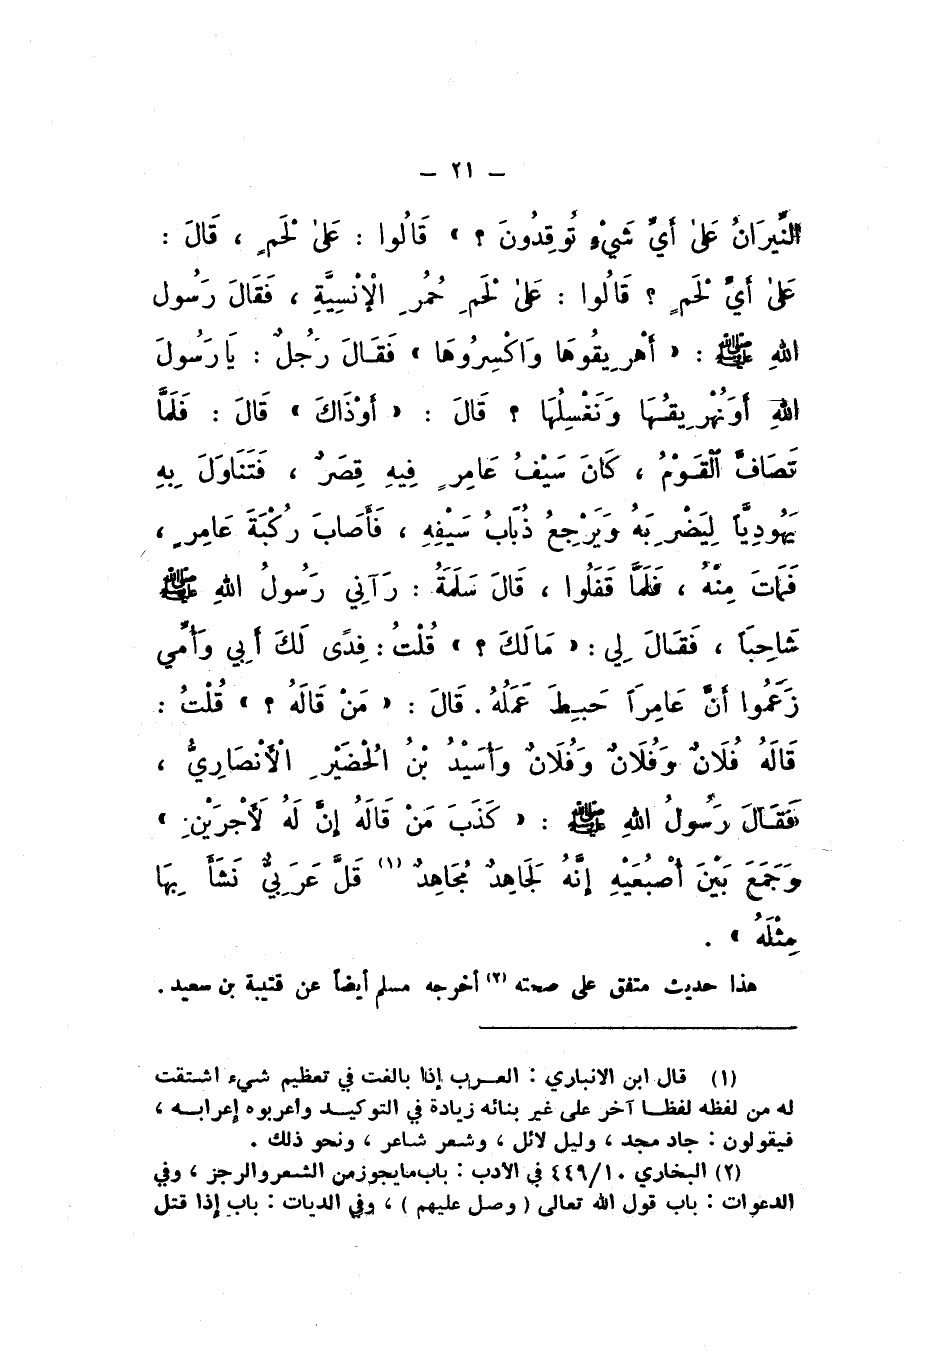 – ٢١ –
النِّيرَانُ عَلىٰ أَيِّ شَيْءٍ تُوقِدُونَ ؟ » قَالُوا : عَلىٰ لَحْمٍ ، قَالَ :
عَلىٰ أَيِّ لَحْمٍ ؟ قَالُوا : عَلىٰ لَحْمِ حُمُرِ الْإنْسِيَّةِ ، فَقَالَ رَسُولُ
اللهِ ﷺ : « أَهْرِيقُوهَا وَاكْسِرُوهَا » فَقَـالَ رَجُلٌ : يَا رَسُولَ
اللهِ أَوَنُهْرِيقُـهَا وَنَغْسِلُهَا ؟ قَالَ : « أَوْذَاكَ » قَالَ : فَلَمَّا
تَصَافَّ الْقَـوْمُ ، كَانَ سَيْفُ عَامِرٍ فِيهِ قِصَرٌ ، فَتَنَاوَلَ بِهِ
يَهُودِيًّا لِيَضْرِبَهُ وَيَرْجِعُ ذُبَابُ سَيْفِهِ ، فَأَصَابَ رُكْبَةَ عَامِرٍ ،
فَمَاتَ مِنْهُ ، فَلَمَّا قَفَلُوا ، قَالَ سَلَمَةُ : رَآنِي رَسُولُ اللهِ ﷺ
شَاحِبًا ، فَقَـالَ لِي : « مَالَكَ ؟ » قُلْتُ : فِدًى لَكَ أَبِي وَأُمِّي
زَعَمُوا أَنَّ عَامِرًا حَبِـطَ عَمَلُهُ . قَالَ : « مَنْ قَالَهُ ؟ » قُلْتُ :
قَالَهُ فُلَانٌ وَفُلَانٌ وَفُلَانٌ وَأُسَيْدُ بْنُ الْحُضَيْرِ الْأَنْصَارِيُّ ،
فَقَـالَ رَسُولُ اللهِ ﷺ : « كَذَبَ مَنْ قَالَهُ إِنَّ لَهُ لَأَجْرَيْنِ »
وَجَمَعَ بَيْنَ أُصْبُعَيْهِ إِنَّهُ لَجَاهِدٌ مُجَاهِدٌ (١) قَلَّ عَرَبِيٌّ نَشَأَ بِهَا
مِثْلَهُ » .
هذا حديث متفق على صحته (٢) أخرجه مسلم أيضاً عن قتيبة بن سعيد .
(١) قال ابن الانباري : العـرب إذا بالغت في تعظيم شيء اشتقت
له من لفظه لفظـا آخر على غير بنائه زيادة في التوكيـد وأعربوه إعرابـه ،
فيقولون : جاد مجد ، وليل لائل ، وشعر شاعر ، ونحو ذلك .
(٢) البخاري ٤٤٩/١٠ في الادب : باب مايجوز من الشعر والرجز ، وفي
الدعوات : باب قول الله تعالى ( وصل عليهم ) ، وفي الديات : باب إذا قتل